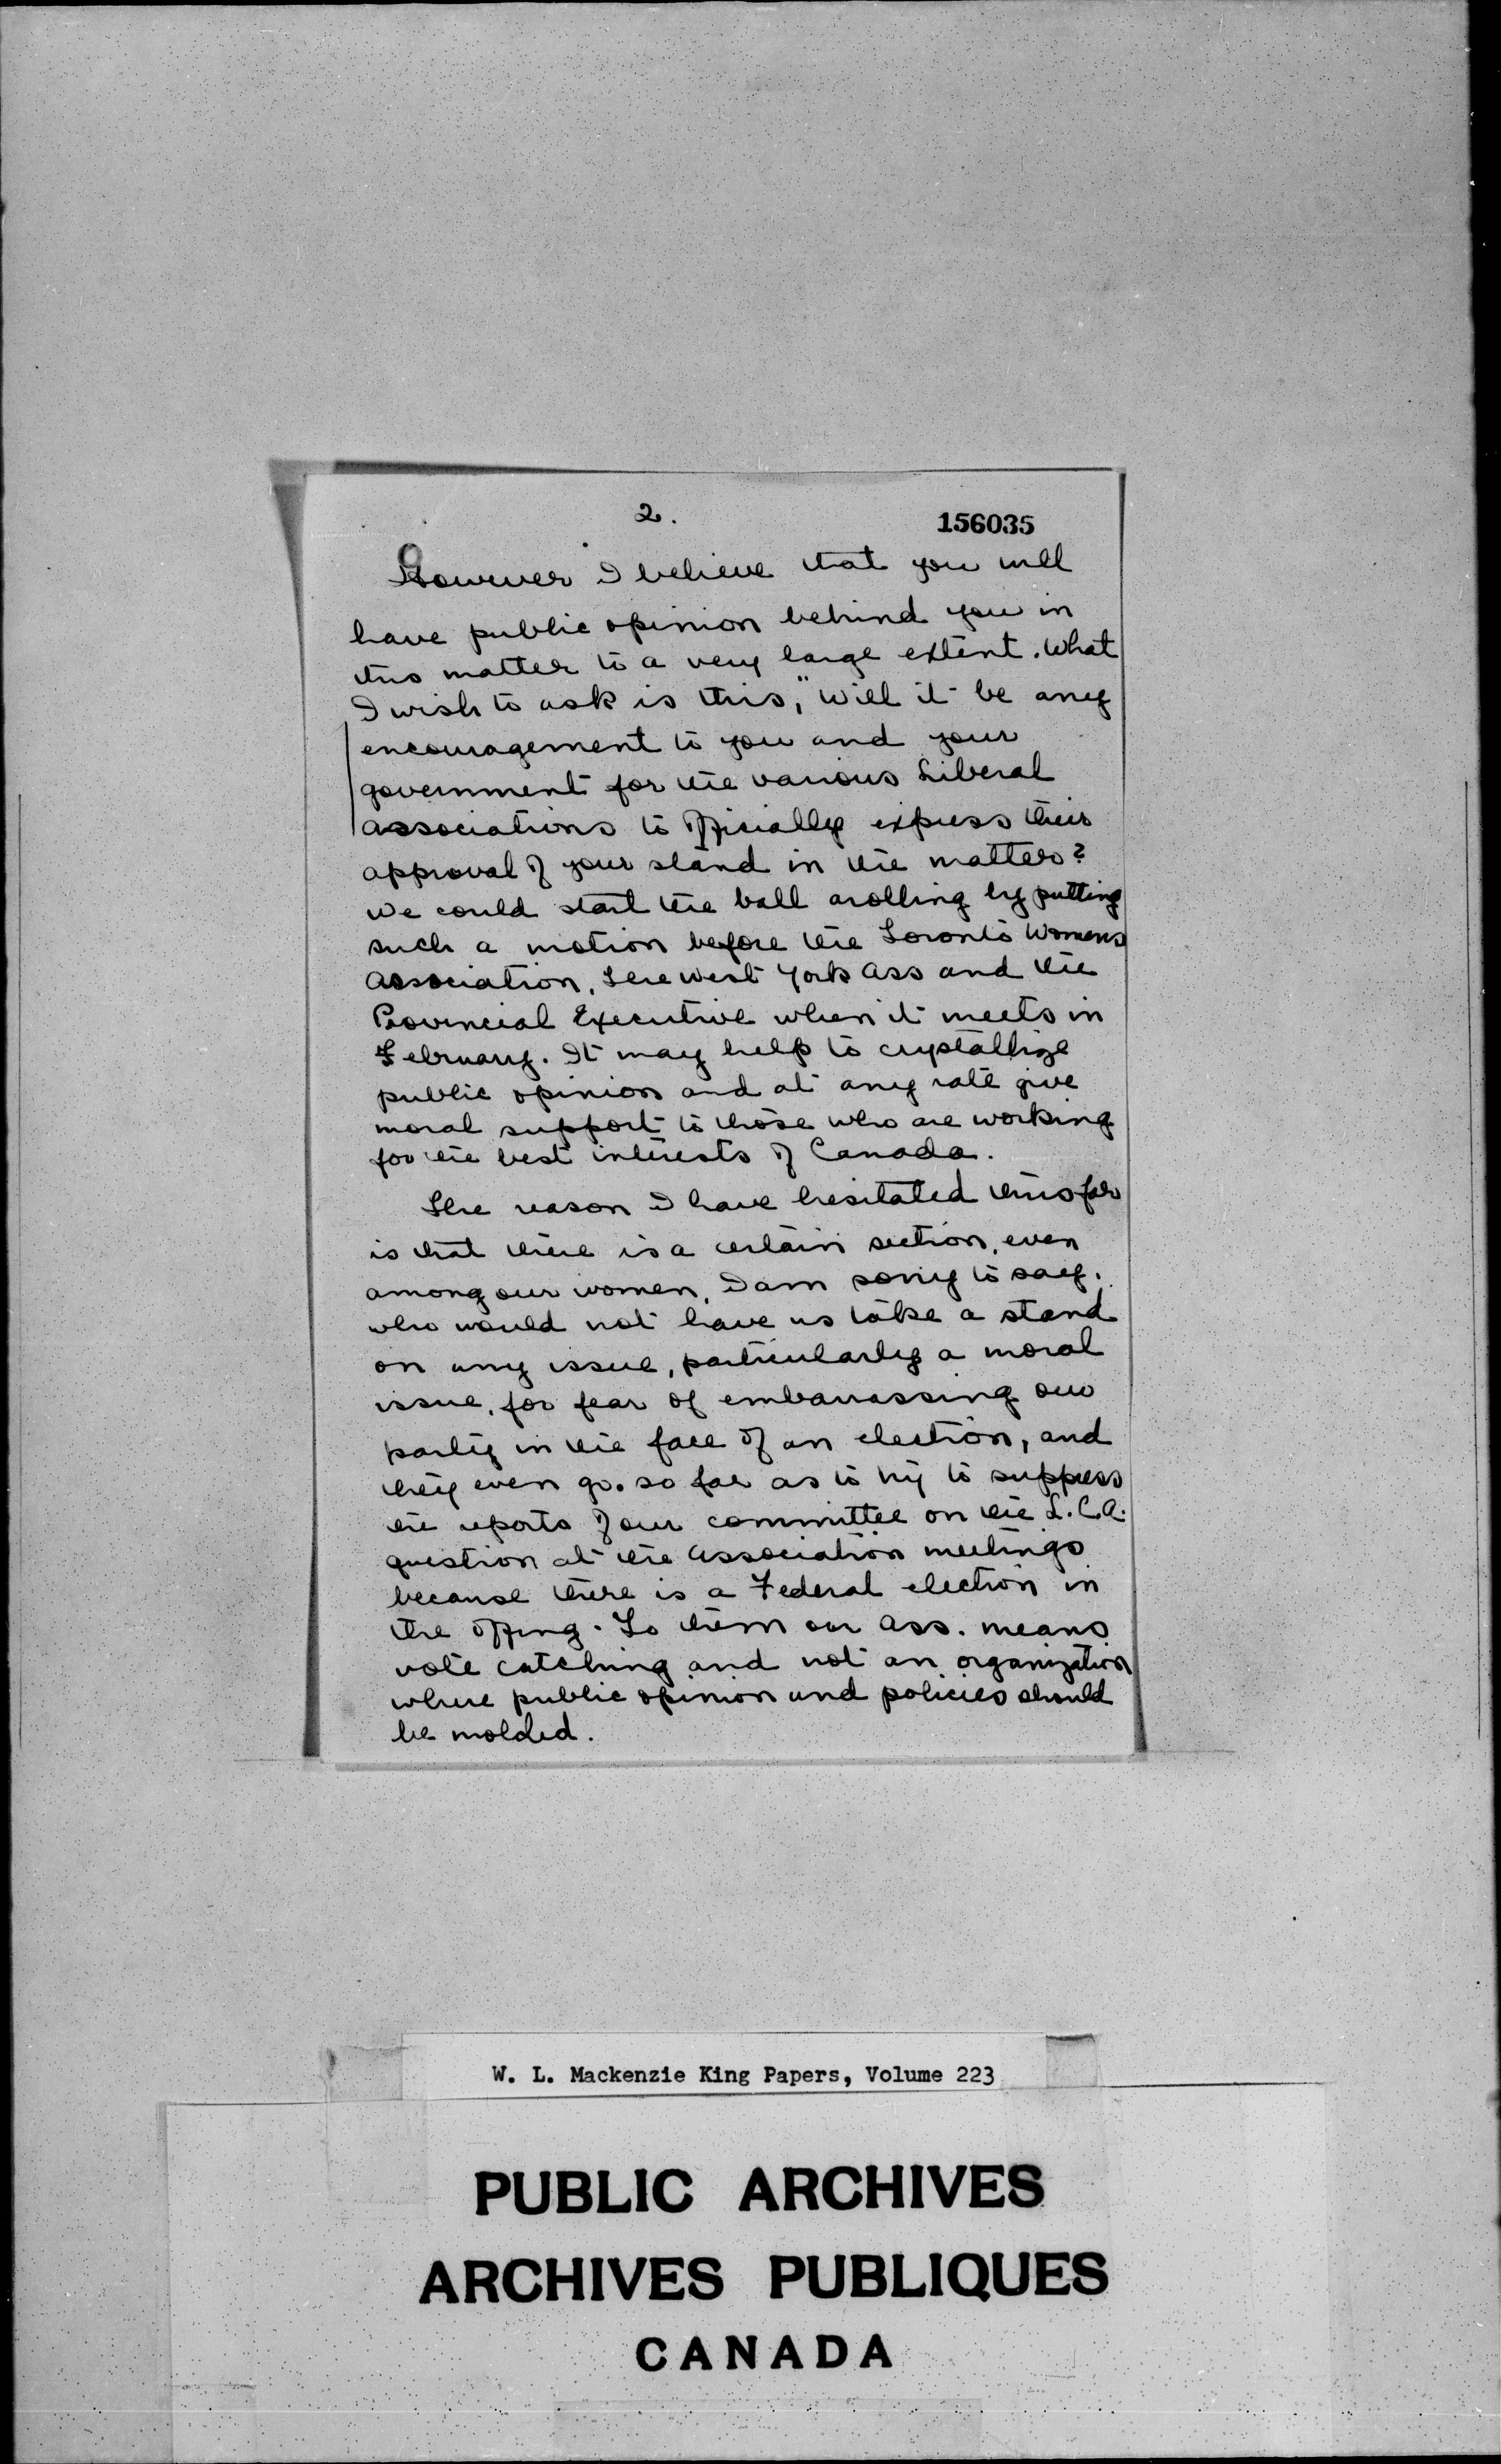 2.
156035
However I believe that you will
have public opinion behind you in
this matter to a very large extent. What
I wish to ask is this, "Will it be any
encouragement to you and your
government for the various Liberal
associations to officially express their
approval of your stand in the matter?
We could start the ball arolling by putting
such a motion before the Toronto Womens
Association, the West York Ass and the
Provincial Executive when it meets in
February. It may help to crystallize
public opinion and at any rate give
moral support to those who are working
for the best interests of Canada.
The reason I have hesitated thus far
is that there is a certain section, even
among our women, I am sorry to say,
who would not have us take a stand
on any issue, particularly a moral
issue, for fear of embarrassing our
party in the face of an election, and
they even go so far as to try to suppress
the reports of our committee on the L.C.A.
question at the Association meetings
because there is a Federal election in
the offing. To them our Ass. means
vote catching and not an organization
where public opinion and policies should
be molded.
W. L. Mackenzie King Papers, Volume 223
PUBLIC ARCHIVES
ARCHIVES PUBLIQUES
CANADA